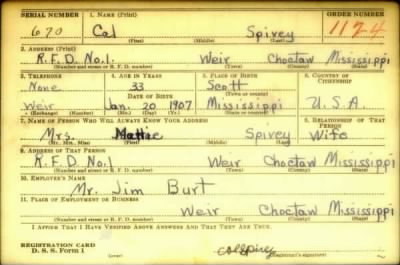 SERIAL NUMBER 1. NAME (Print) ORDER NUMBER
670 Cal Spivey 1124
(First) (Middle) (Last)
2. ADDRESS (Print)
R.F.D. No.1 Weir Choctaw Mississippi
(Number and street or R. F. D. number) (Town) (County) (State)
3. TELEPHONE 4. AGE IN YEARS 5. PLACE OF BIRTH 6. COUNTRY OF CITIZENSHIP
None 33 Scott
DATE OF BIRTH (Town or county)
Weir Jan. 20 1907 Mississippi U.S.A.
(Exchange) (Number) (Mo.) (Day) (Yr.) (State or country)
7. NAME OF PERSON WHO WILL ALWAYS KNOW YOUR ADDRESS 8. RELATIONSHIP OF THAT PERSON
Mrs. Mattie Spivey Wife
(Mr., Mrs., Miss) (First) (Middle) (Last)
9. ADDRESS OF THAT PERSON
R.F.D. No.1 Weir Choctaw Mississippi
(Number and street or R. F. D. number) (Town) (County) (State)
10. EMPLOYER'S NAME
Mr. Jim Burt
11. PLACE OF EMPLOYMENT OR BUSINESS
Weir Choctaw Mississippi
(Number and street or R. F. D. number) (Town) (County) (State)
I AFFIRM THAT I HAVE VERIFIED ABOVE ANSWERS AND THAT THEY ARE TRUE.
REGISTRATION CARD
D. S. S. Form 1 (over) cal spivey
(Registrant's signature)